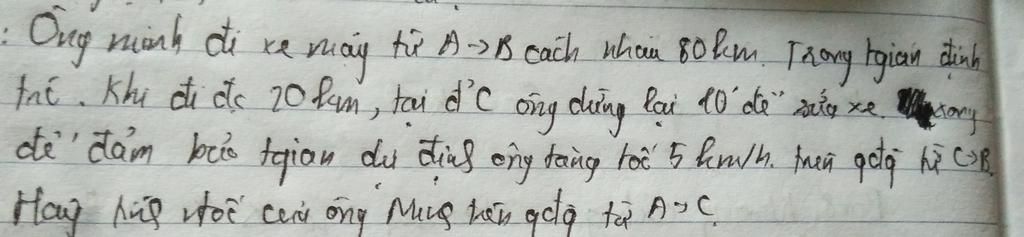 : Ông minh đi xe máy từ A → B cách nhau 80 km. Trong tgian định
trc. Khi đi đc 20 km, tại đ' C ông dừng lại 10' để sửa xe. xong
để đảm bảo tgian dự định ông tăng tốc 5 km/h. trên qđg từ C→B.
Hãy vtốc của ông trên qđg từ A → C.